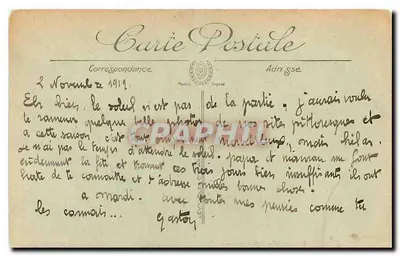 Carte Postale
Correspondance
Adresse
2 Novembre 1919.
Eh bien, le soleil n'est pas de la partie; j'aurais voulu
te ramener quelque belle photo de ces sites pittoresques et
à cette saison c'est tout mais hélas
je n'ai pas le temps d'attendre le soleil. papa et maman me font
évidemment la tête et trouvent ces trois jours bien insuffisants ils ont
hâte de te connaître et t'adresse milles bonnes choses.
à mardi. avec toutes mes pensées comme tu
les connais... Gaston